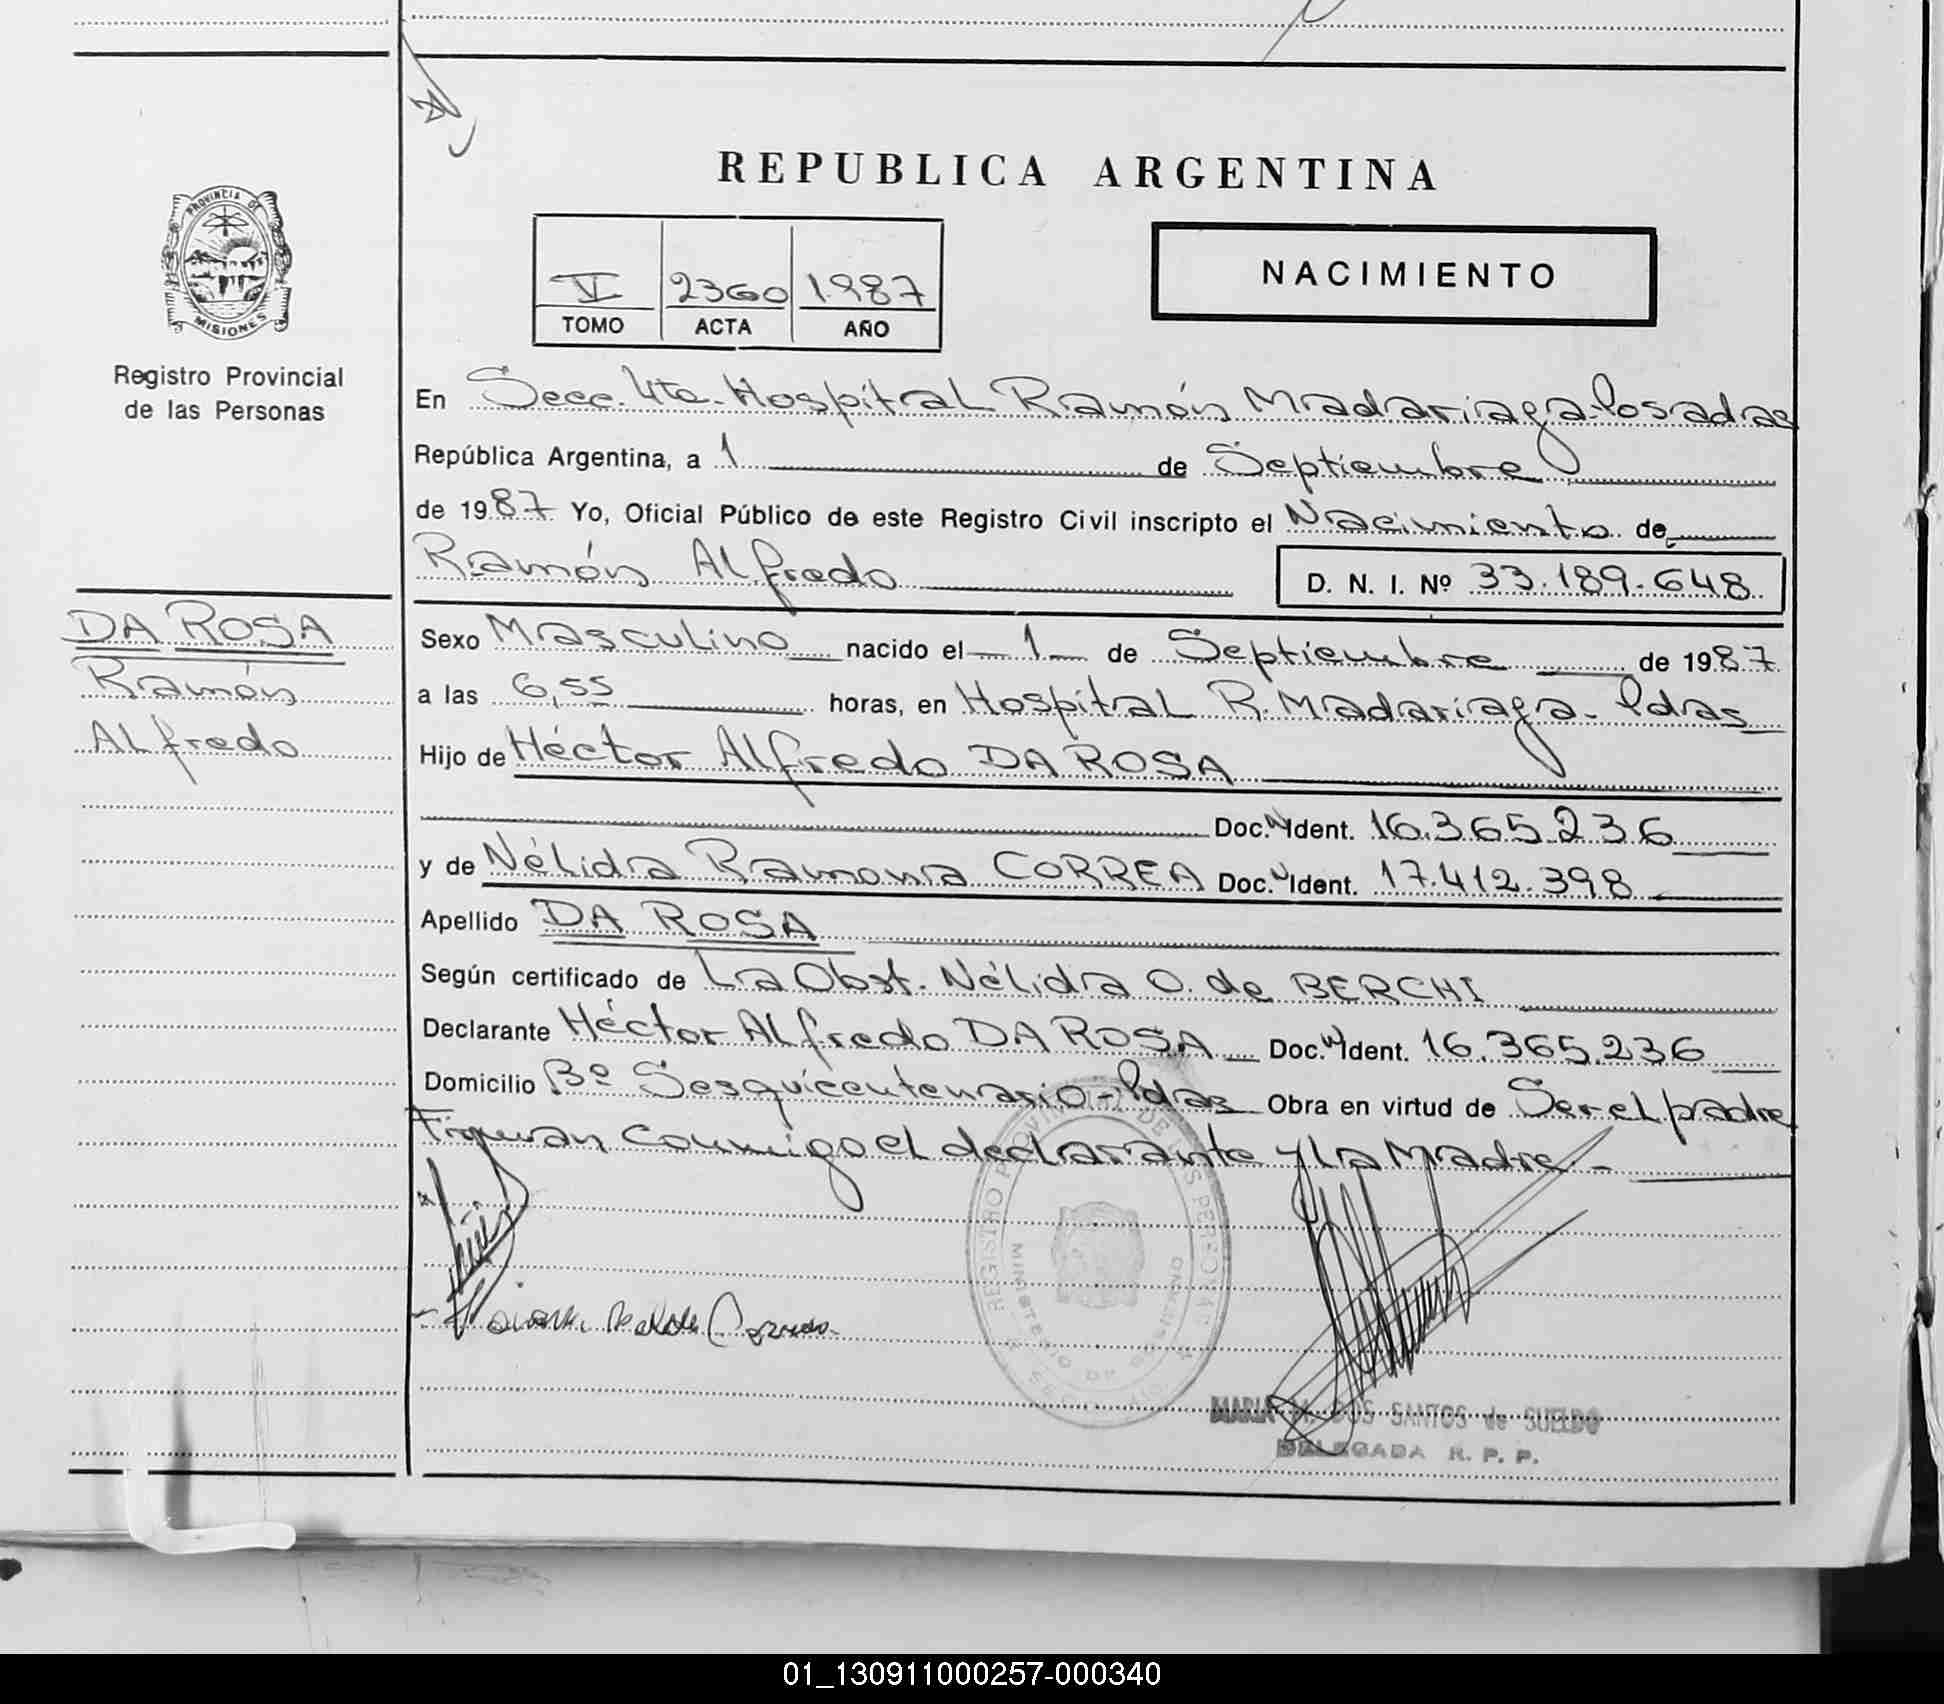 REPUBLICA ARGENTINA
PROVINCIA DE
MISIONES
Registro Provincial
de las Personas
V 2360 1987
TOMO ACTA AÑO
NACIMIENTO
En Secc. 4ta. Hospital Ramón Madariaga - Posadas
República Argentina, a 1 de Septiembre
de 1987 Yo, Oficial Público de este Registro Civil inscripto el Nacimiento de
Ramón Alfredo D. N. I. Nº 33.189.648
DA ROSA
Ramón
Alfredo
Sexo Masculino nacido el 1 de Septiembre de 1987
a las 6,55 horas, en Hospital R. Madariaga - Pdas
Hijo de Héctor Alfredo DA ROSA
Doc. N Ident. 16.365.236
y de Nélida Ramona CORREA Doc. N Ident. 17.412.398
Apellido DA ROSA
Según certificado de La Obst. Nélida O. de BERCHI
Declarante Héctor Alfredo DA ROSA Doc. N Ident. 16.365.236
Domicilio Bº Sesquicentenario - Pdas Obra en virtud de Ser el padre
Firman conmigo el declarante y la Madre.-
REGISTRO PROVINCIAL DE LAS PERSONAS
MINISTERIO DE GOBIERNO
MARIA DOS SANTOS de SUELDO
DELEGADA R. P. P.
01_130911000257-000340